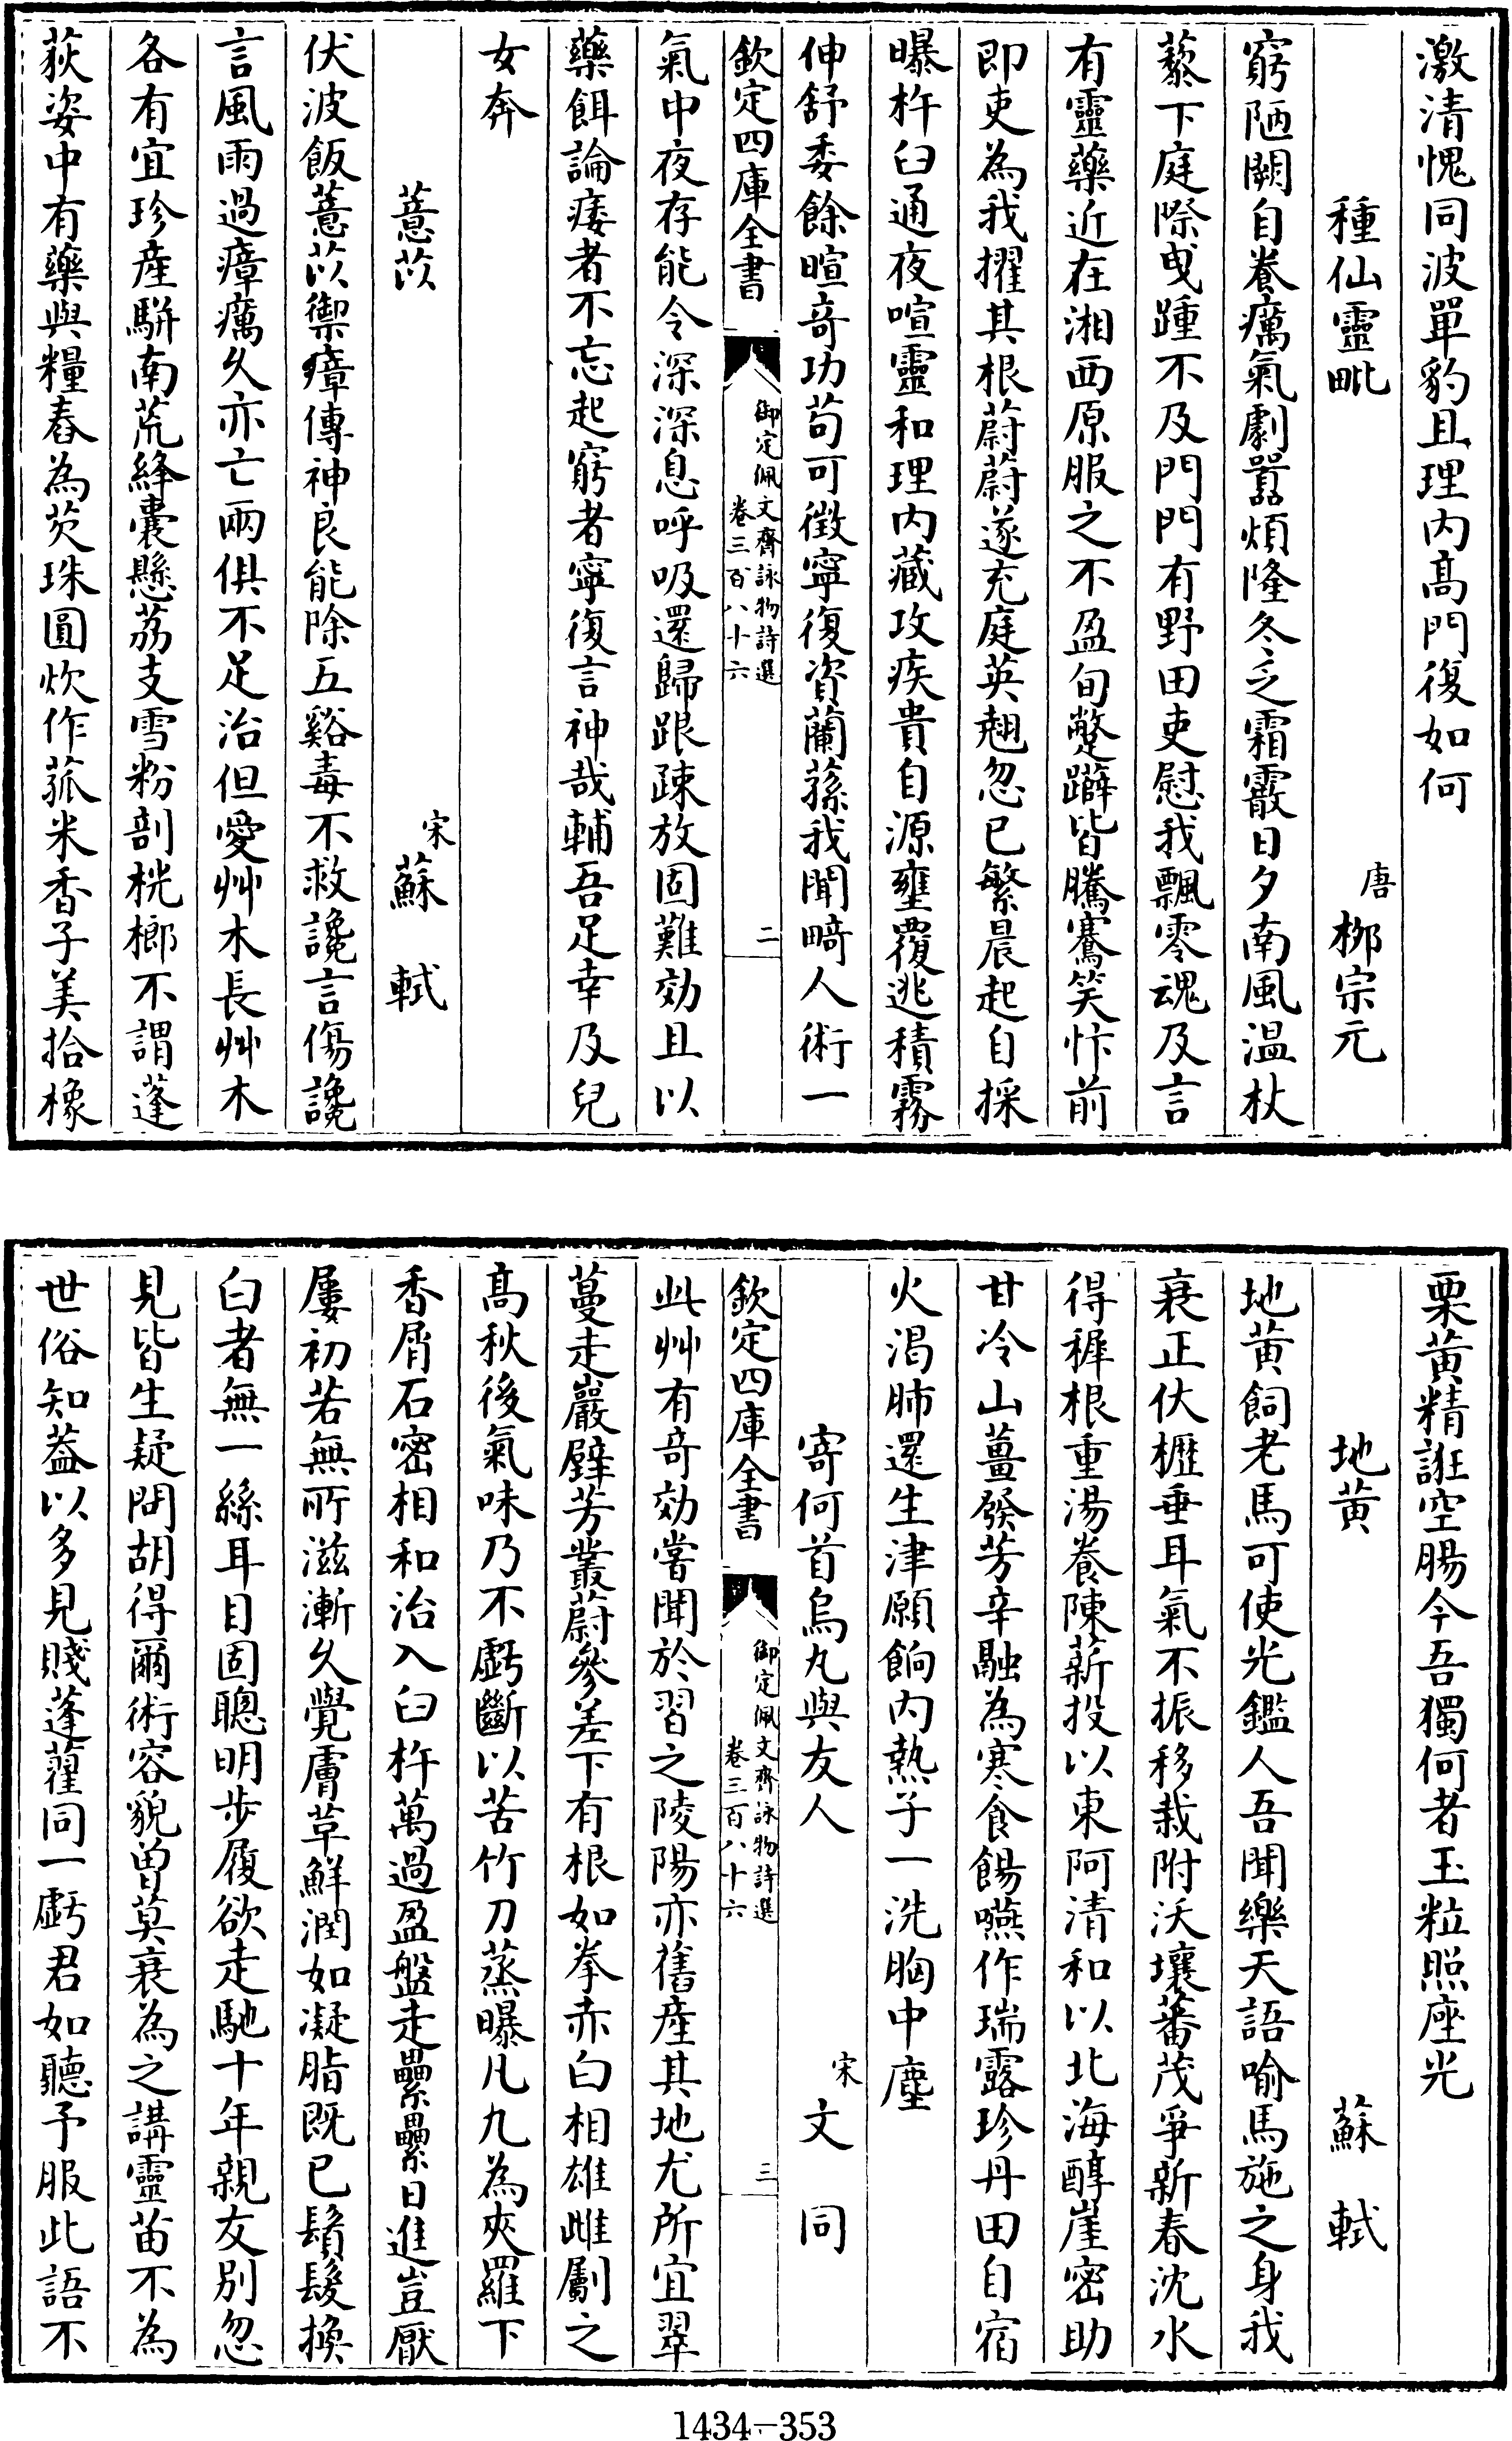 激清愧同波單豹且理内髙門復如何
種仙靈毗
唐栁宗元
窮陋闕自養癘氣劇嚚煩隆冬乏霜霰日夕南風温杖
藜下庭際曵踵不及門門有野田吏慰我飄零魂及言
有靈藥近在湘西原服之不盈旬蹩躃皆騰騫笑忭前
即吏為我擢其根蔚蔚遂充庭英翹忽已繁晨起自採
曝杵臼通夜喧靈和理内藏攻疾貴自源壅覆逃積霧
伸舒委餘暄竒功苟可徴寧復資蘭蓀我聞畸人術一
欽定四庫全書
御定佩文齋詠物詩選
卷三百八十六
二
氣中夜存能令深深息呼吸還歸跟疎放固難効且以
藥餌論痿者不忘起窮者寧復言神哉輔吾足幸及兒
女奔
薏苡
宋蘇軾
伏波飯薏苡禦瘴傳神良能除五谿毒不救讒言傷讒
言風雨過瘴癘久亦亡兩俱不足治但愛艸木長艸木
各有宜珍産駢南荒絳囊懸荔支雪粉剖桄榔不謂蓬
荻姿中有藥與糧舂為芡珠圓炊作菰米香子美拾橡
栗黄精誑空腸今吾獨何者玉粒照座光
地黄
蘇軾
地黄飼老馬可使光鑑人吾聞樂天語喻馬施之身我
衰正伏櫪垂耳氣不振移栽附沃壤蕃茂爭新春沈水
得穉根重湯養陳薪投以東阿清和以北海醇崖密助
甘冷山薑發芳辛融為寒食餳嚥作瑞露珍丹田自宿
火渴肺還生津願餉内熱子一洗胸中塵
寄何首烏丸與友人
宋文同
欽定四庫全書
御定佩文齋詠物詩選
卷三百八十六
三
此艸有竒効嘗聞於習之陵陽亦舊産其地尤所宜翠
蔓走巖壁芳叢蔚參差下有根如拳赤白相雄雌斸之
髙秋後氣味乃不虧斷以苦竹刀蒸曝凡九為夾羅下
香屑石密相和治入臼杵萬過盈盤走纍纍日進豈厭
屢初若無所滋漸久覺膚革鮮潤如凝脂既已鬚髮換
白者無一絲耳目固聰明步履欲走馳十年親友别忽
見皆生疑問胡得爾術容貌曽莫衰為之講靈苗不為
世俗知葢以多見賤蓬藋同一虧君如聽予服此語不
1434-353